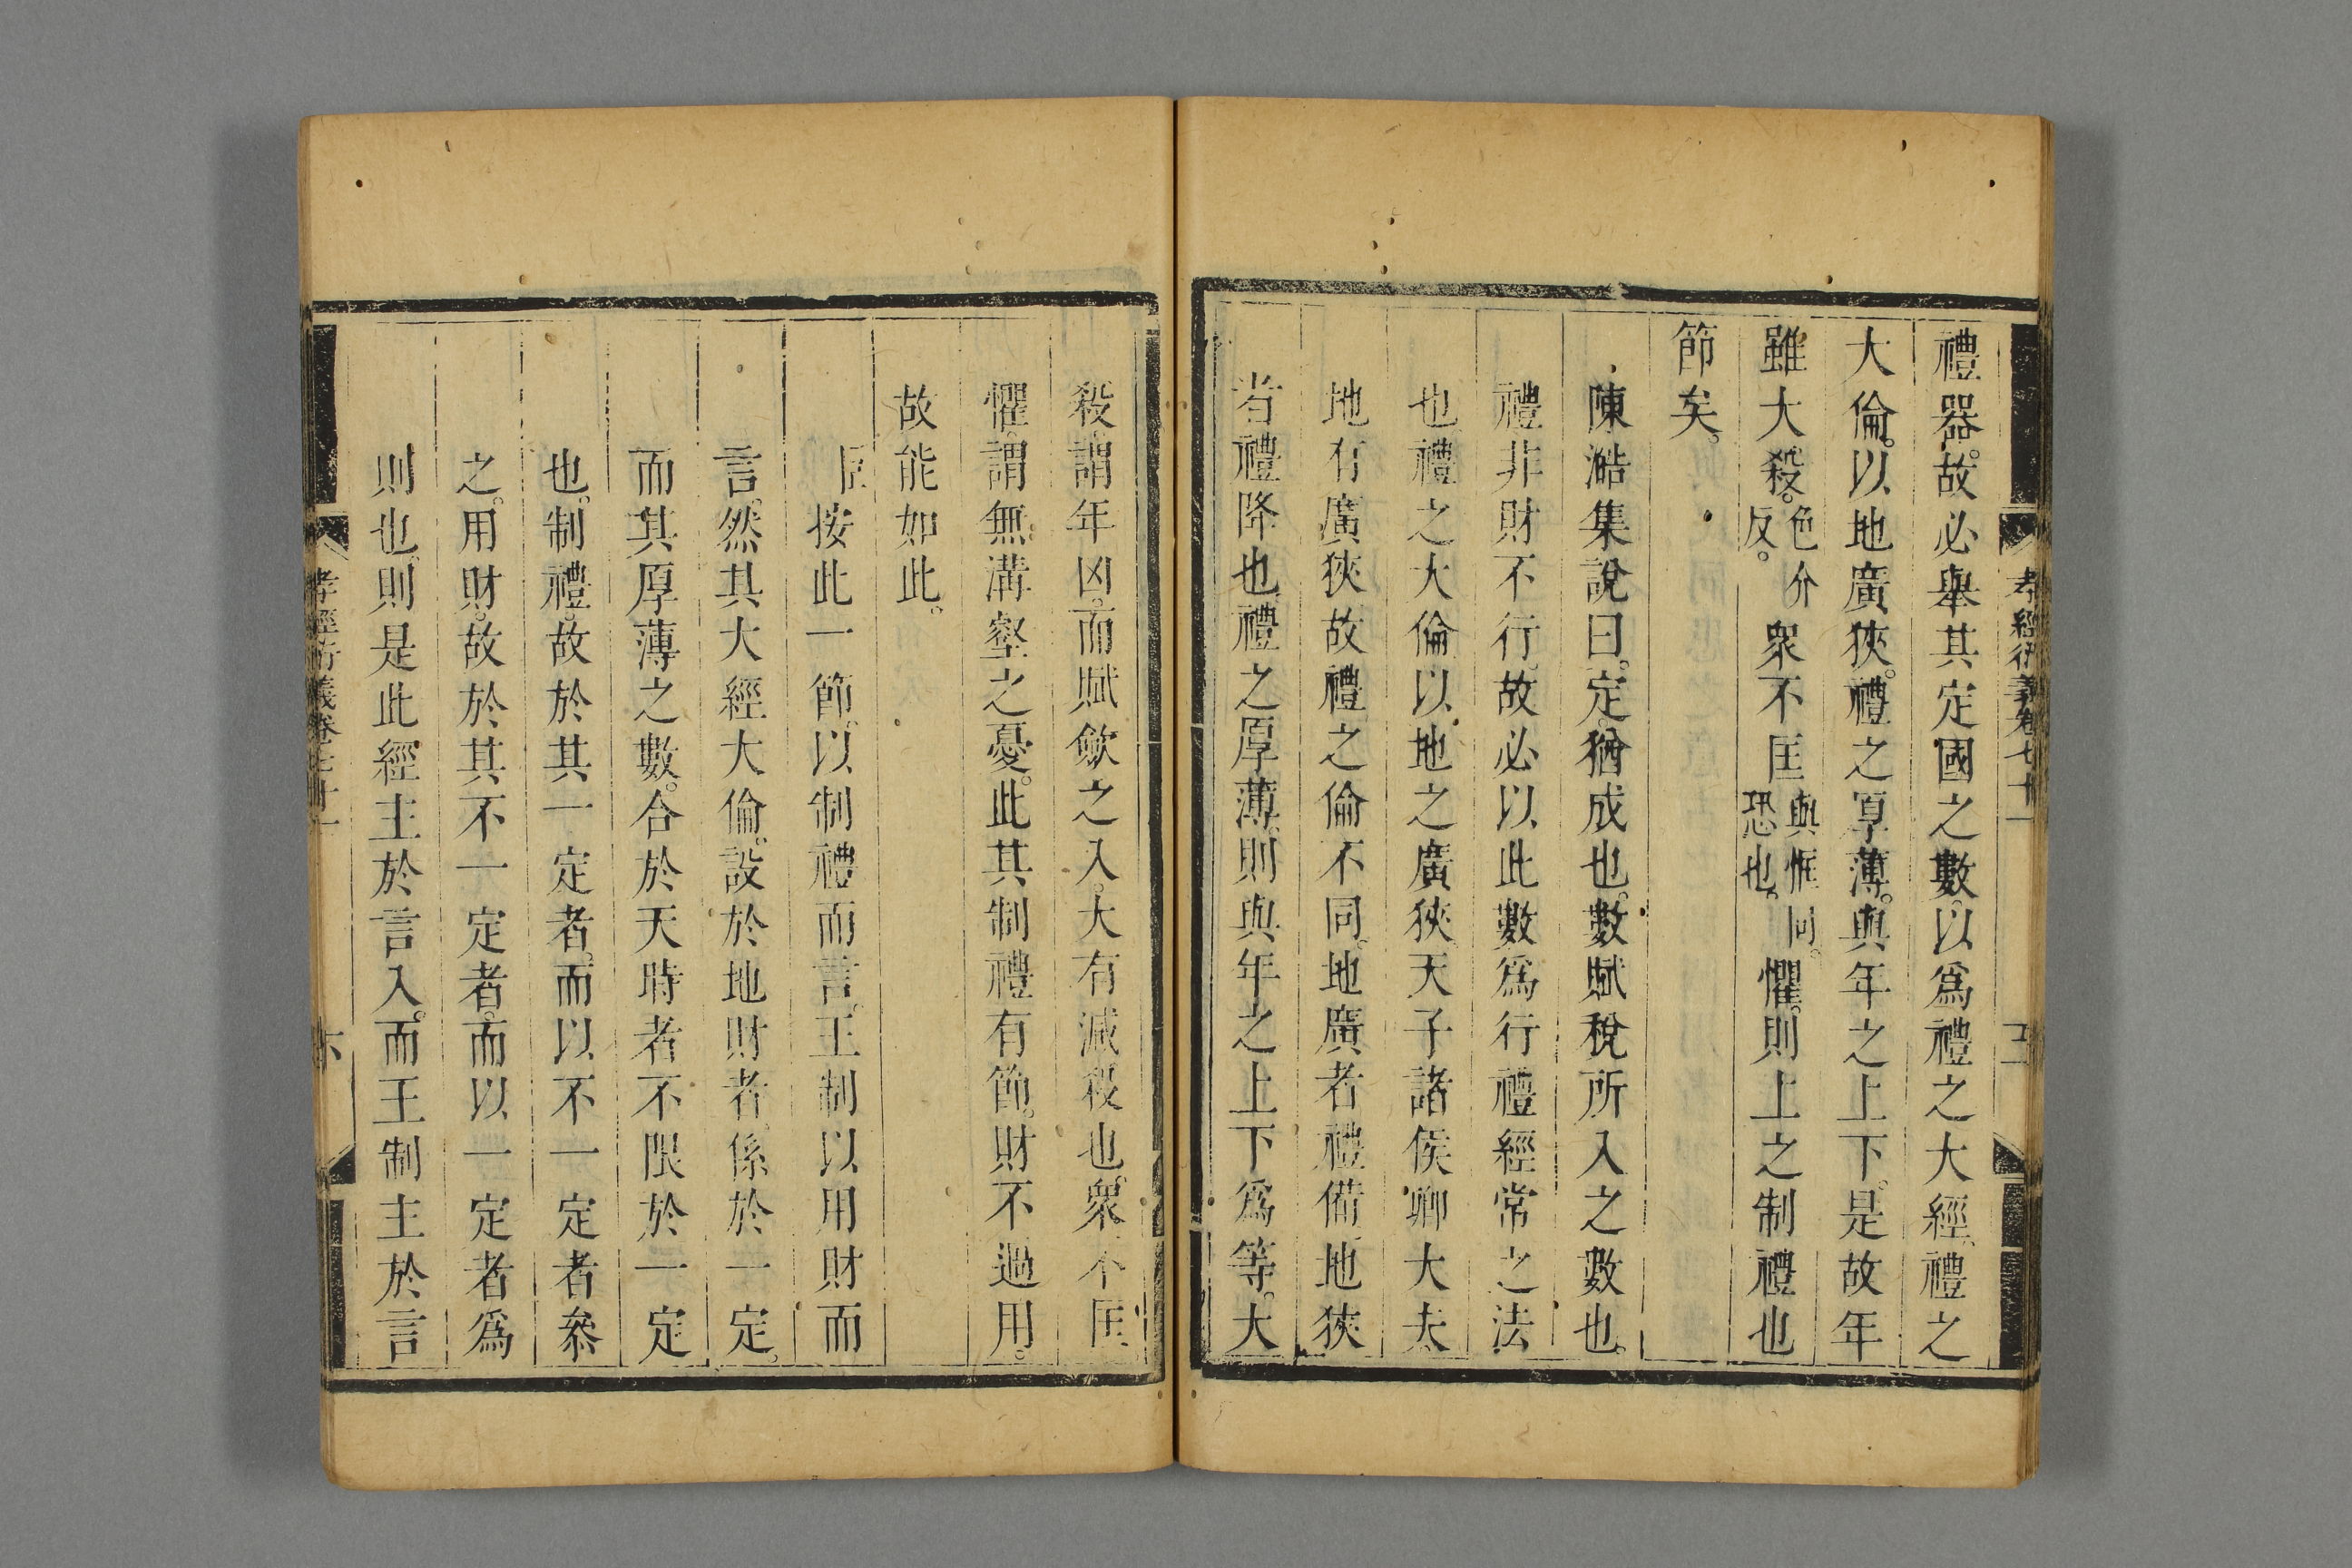 孝經衍義卷七十一
五
禮器。故必舉其定國之數。以爲禮之大經。禮之
大倫。以地廣狹。禮之厚薄。與年之上下。是故年
雖大殺。色介反。衆不匡與恇同。恐也。懼。則上之制禮也
節矣。
陳澔集說曰。定。猶成也。數賦稅所入之數也。
禮非財不行。故必以此數爲行禮經常之法
也。禮之大倫以地之廣狹。天子諸侯卿大夫
地有廣狹故禮之倫不同。地廣者禮備。地狹
者禮降也。禮之厚薄。則與年之上下爲等。大
殺。謂年凶。而賦斂之入。大有減殺也。衆不匡
懼。謂無溝壑之憂。此其制禮有節。財不過用。
故能如此。
臣按此一節。以制禮而言。王制以用財而
言。然其大經大倫。設於地財者。係於一定。
而其厚薄之數。合於天時者不限於一定
也。制禮。故於其一定者。而以不一定者叅
之。用財。故於其不一定者。而以一定者爲
則也。則是此經主於言入。而王制主於言
孝經衍義卷七十一
六